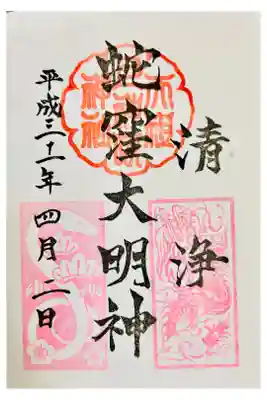 清浄
蛇窪大明神
平成三十一年 四月二日
天祖
神社